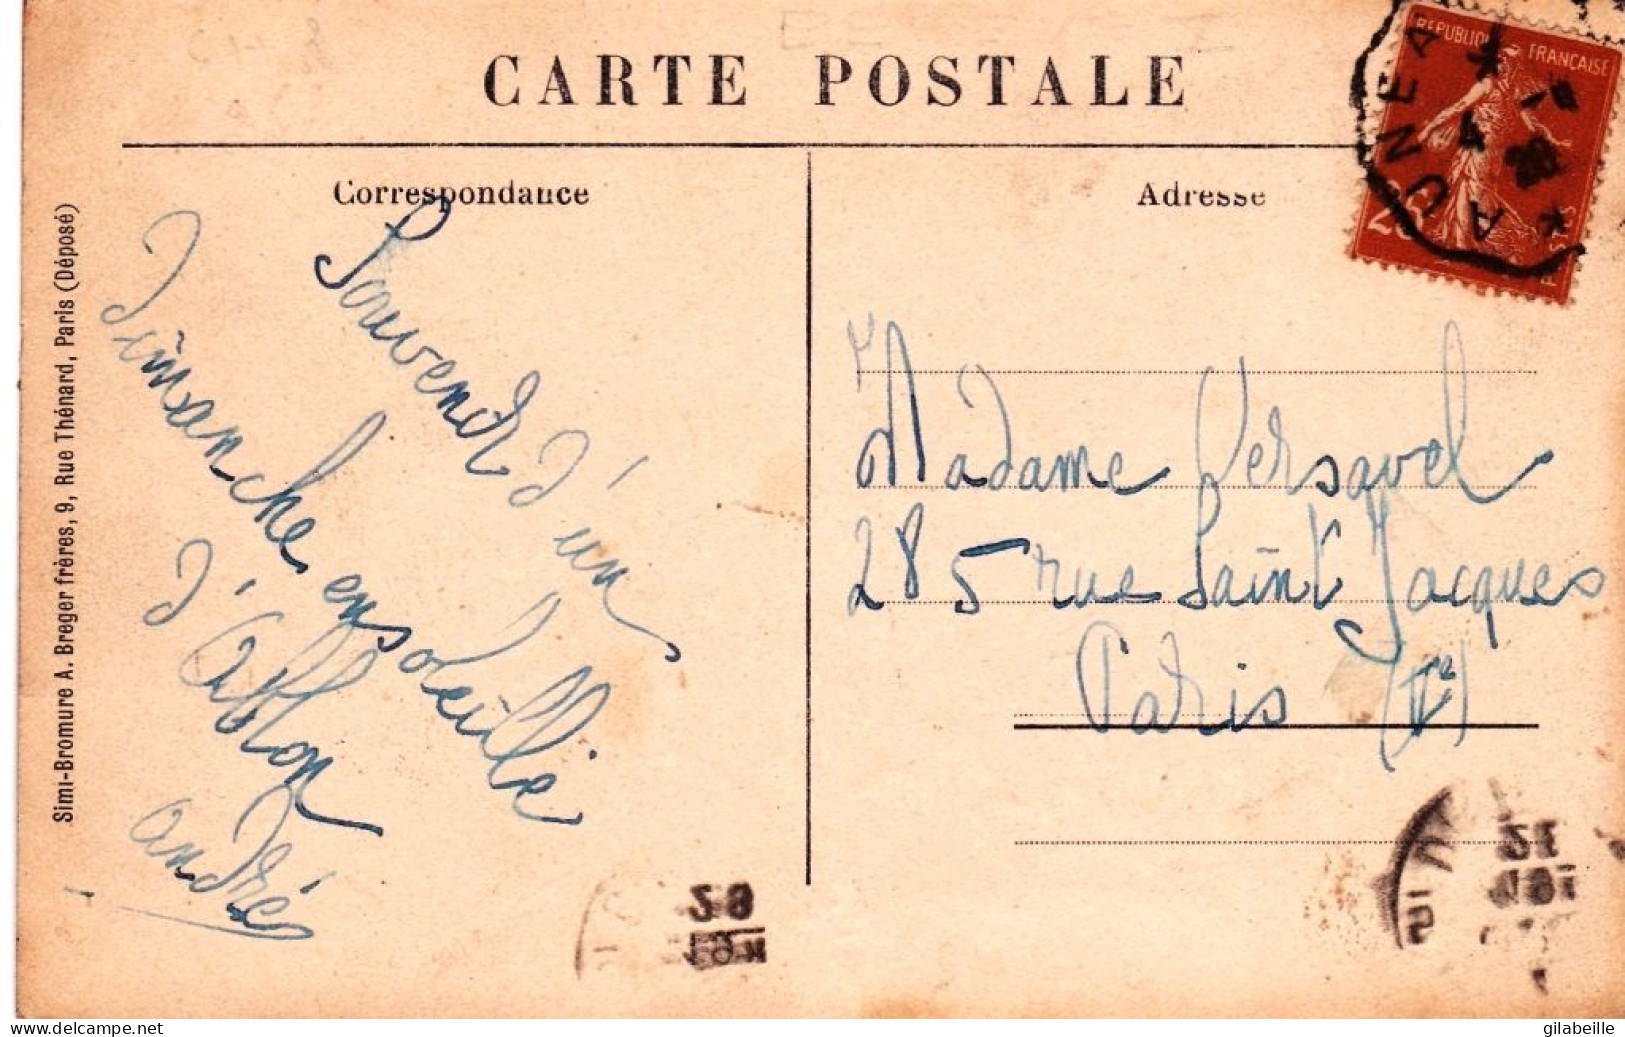 CARTE POSTALE
Correspondance
Adresse
Simi-Bromure A. Breger frères, 9, Rue Thénard, Paris (Déposé)
Souvenir d'un
dimanche ensoleillé
d'Ablon
André
Madame Versavel
285 rue Saint Jacques
Paris (Ve)
REPUBLIQUE FRANÇAISE
25
POSTES
AUNEA
4
28
www.delcampe.net
gilabeille